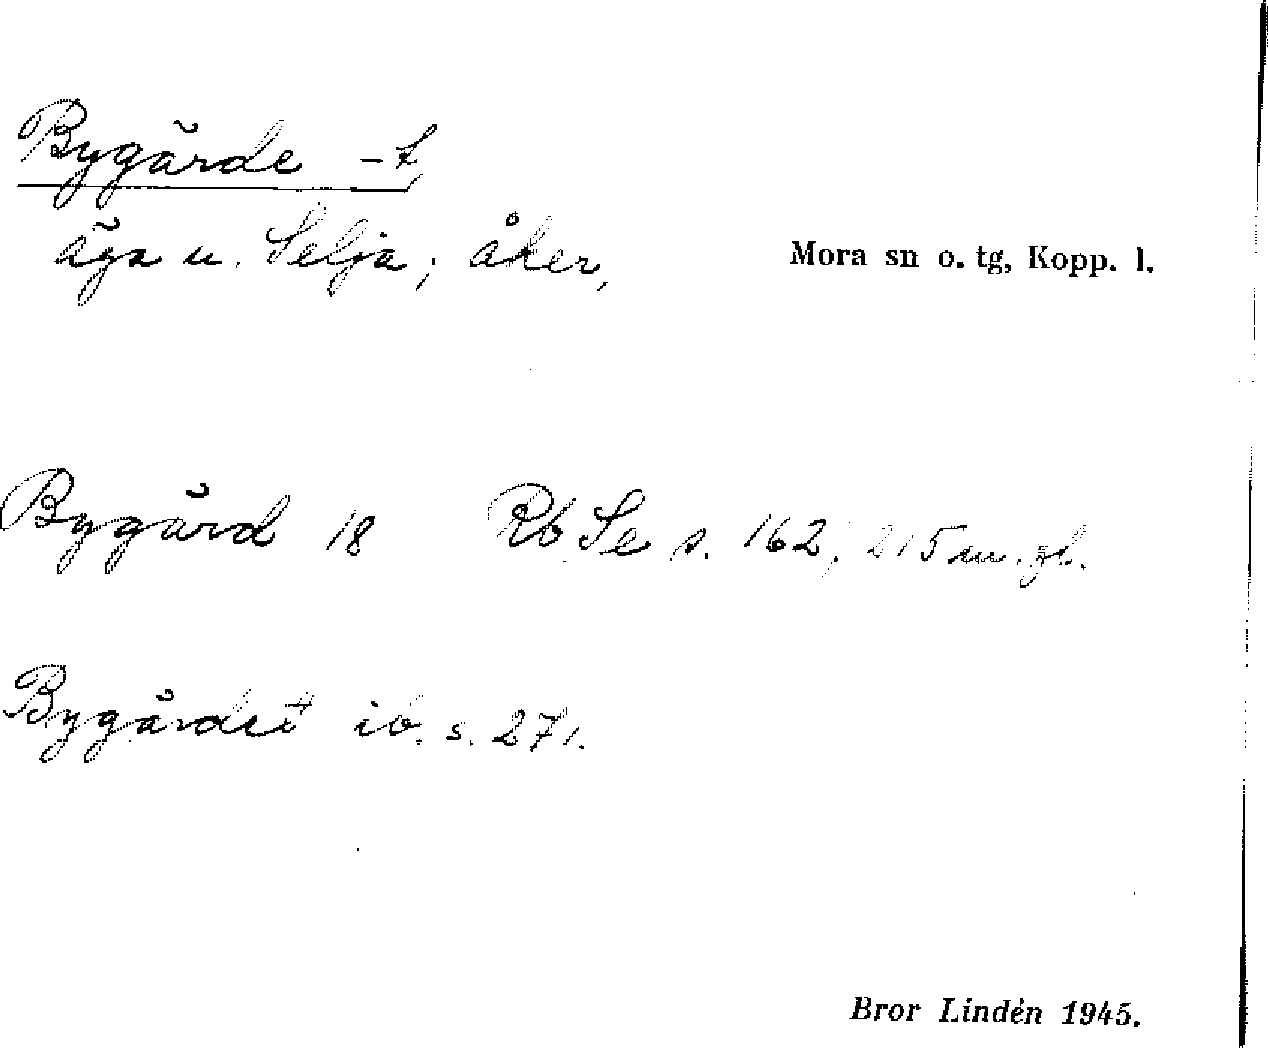 Bygärde -t,
äga u. Selja; åker,
Mora sn o. tg, Kopp. l.
Bygärd 18 Rb Se s. 162; 215 m. fl.
Bygärdet ib. s. 271.
Bror Lindén 1945.